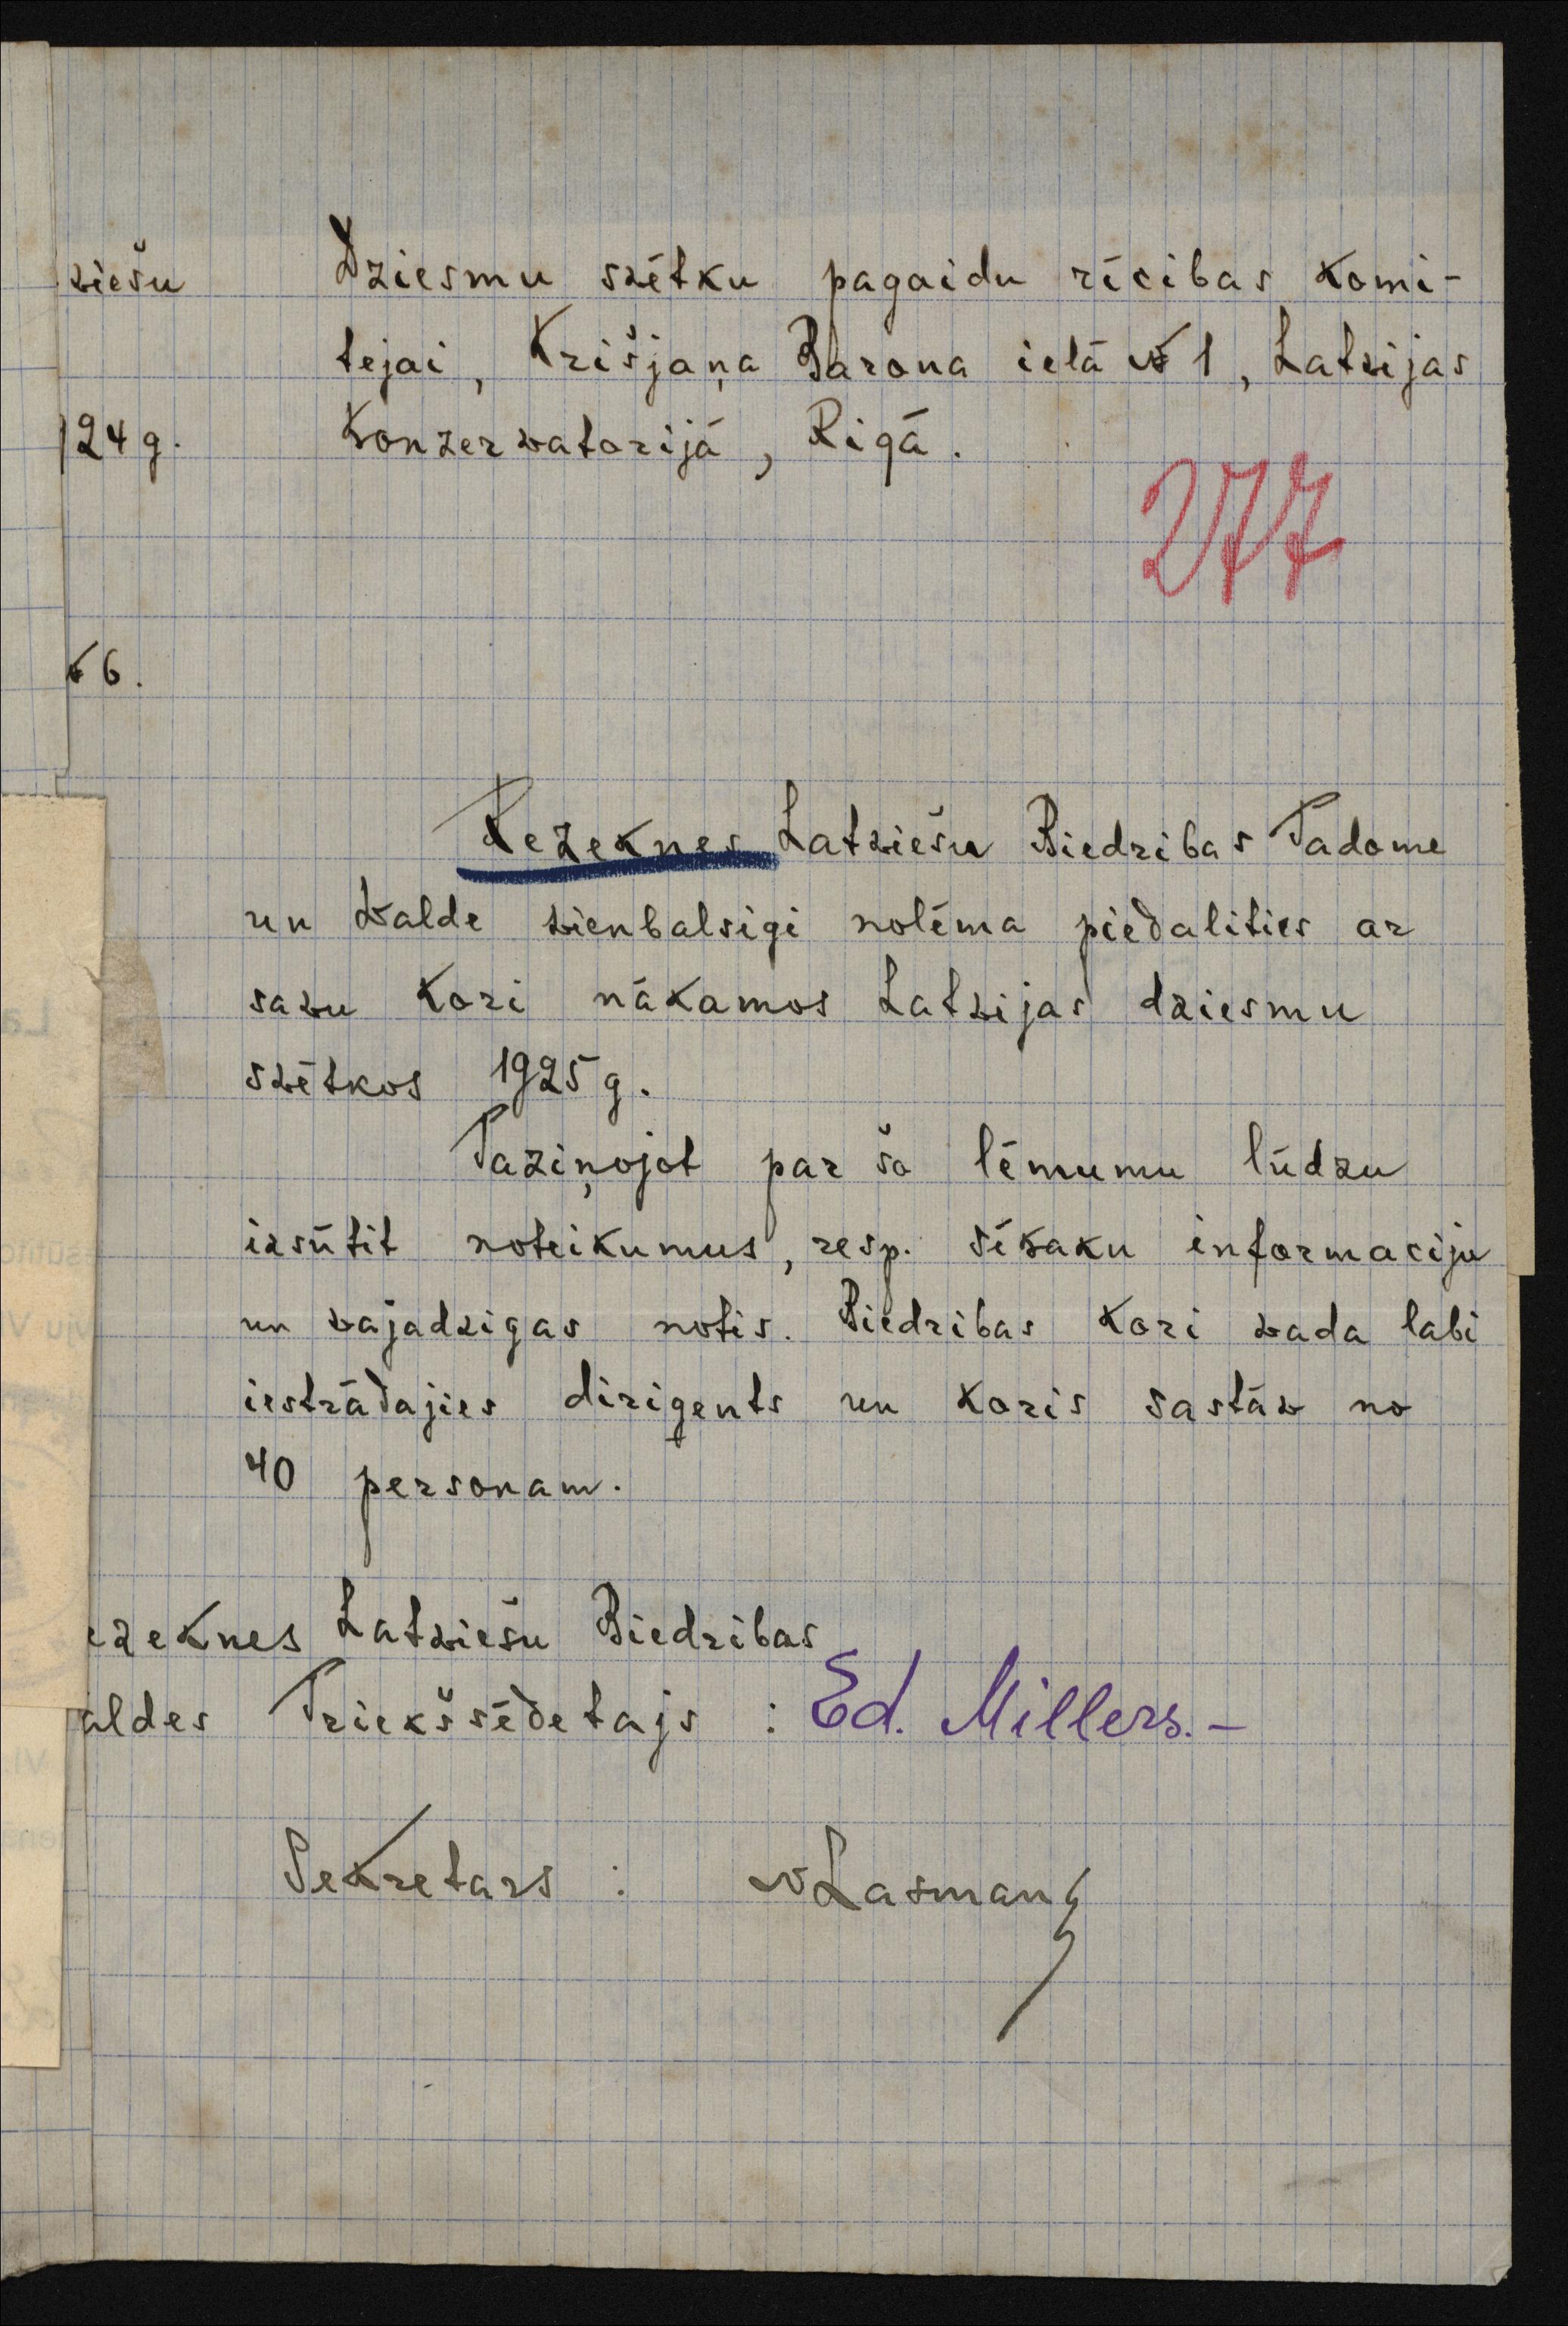 ziešu
Dziesmu svētku pagaidu rīcibas komi-
tejai, Krišjaņa Barona ielā № 1, Latvijas
124 g.
Konzervatorijā, Rigā.
277
№ 6.
Rezeknes Latviešu Biedribas Padome
un Valde vienbalsigi nolēma piedalities ar
savu kori nākamos Latvijas dziesmu
svētkos 1925 g.
Paziņojot par šo lēmumu lūdzu
izsūtit noteikumus, resp. sīkaku informaciju
un vajadzigas notis. Biedribas kori vada labi
iestrādajies diriģents un koris sastāv no
40 personam.
ezeknes Latviešu Biedribas
aldes Priekšsēdetajs : Ed. Millers.-
Sekretars : Lasmanis